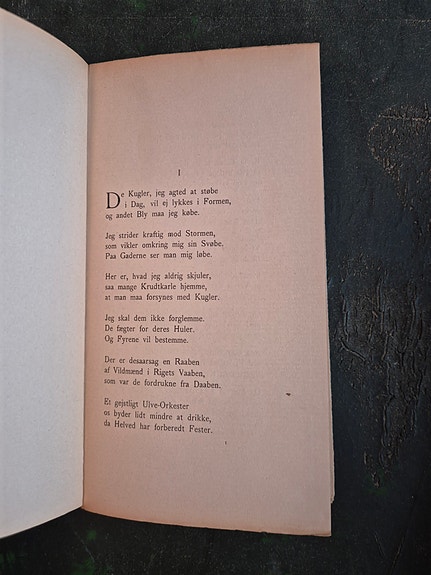 I
De Kugler, jeg agted at støbe
i Dag, vil ej lykkes i Formen,
og andet Bly maa jeg købe.
Jeg strider kraftig mod Stormen,
som vikler omkring mig sin Svøbe.
Paa Gaderne ser man mig løbe.
Her er, hvad jeg aldrig skjuler,
saa mange Krudtkarle hjemme,
at man maa forsynes med Kugler.
Jeg skal dem ikke forglemme.
De fægter for deres Huler.
Og Fyrene vil bestemme.
Der er desaarsag en Raaben
af Vildmænd i Rigets Vaaben,
som var de fordrukne fra Daaben.
Et gejstligt Ulve-Orkester
os byder lidt mindre at drikke,
da Helved har forberedt Fester.